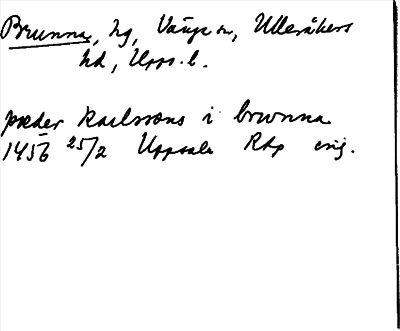 Brunna, hg, Vänge sn, Ulleråkers
hd, Upps. l.
pæder karlssons i brwnna
1456 25/2 Uppsala Rdp orig.